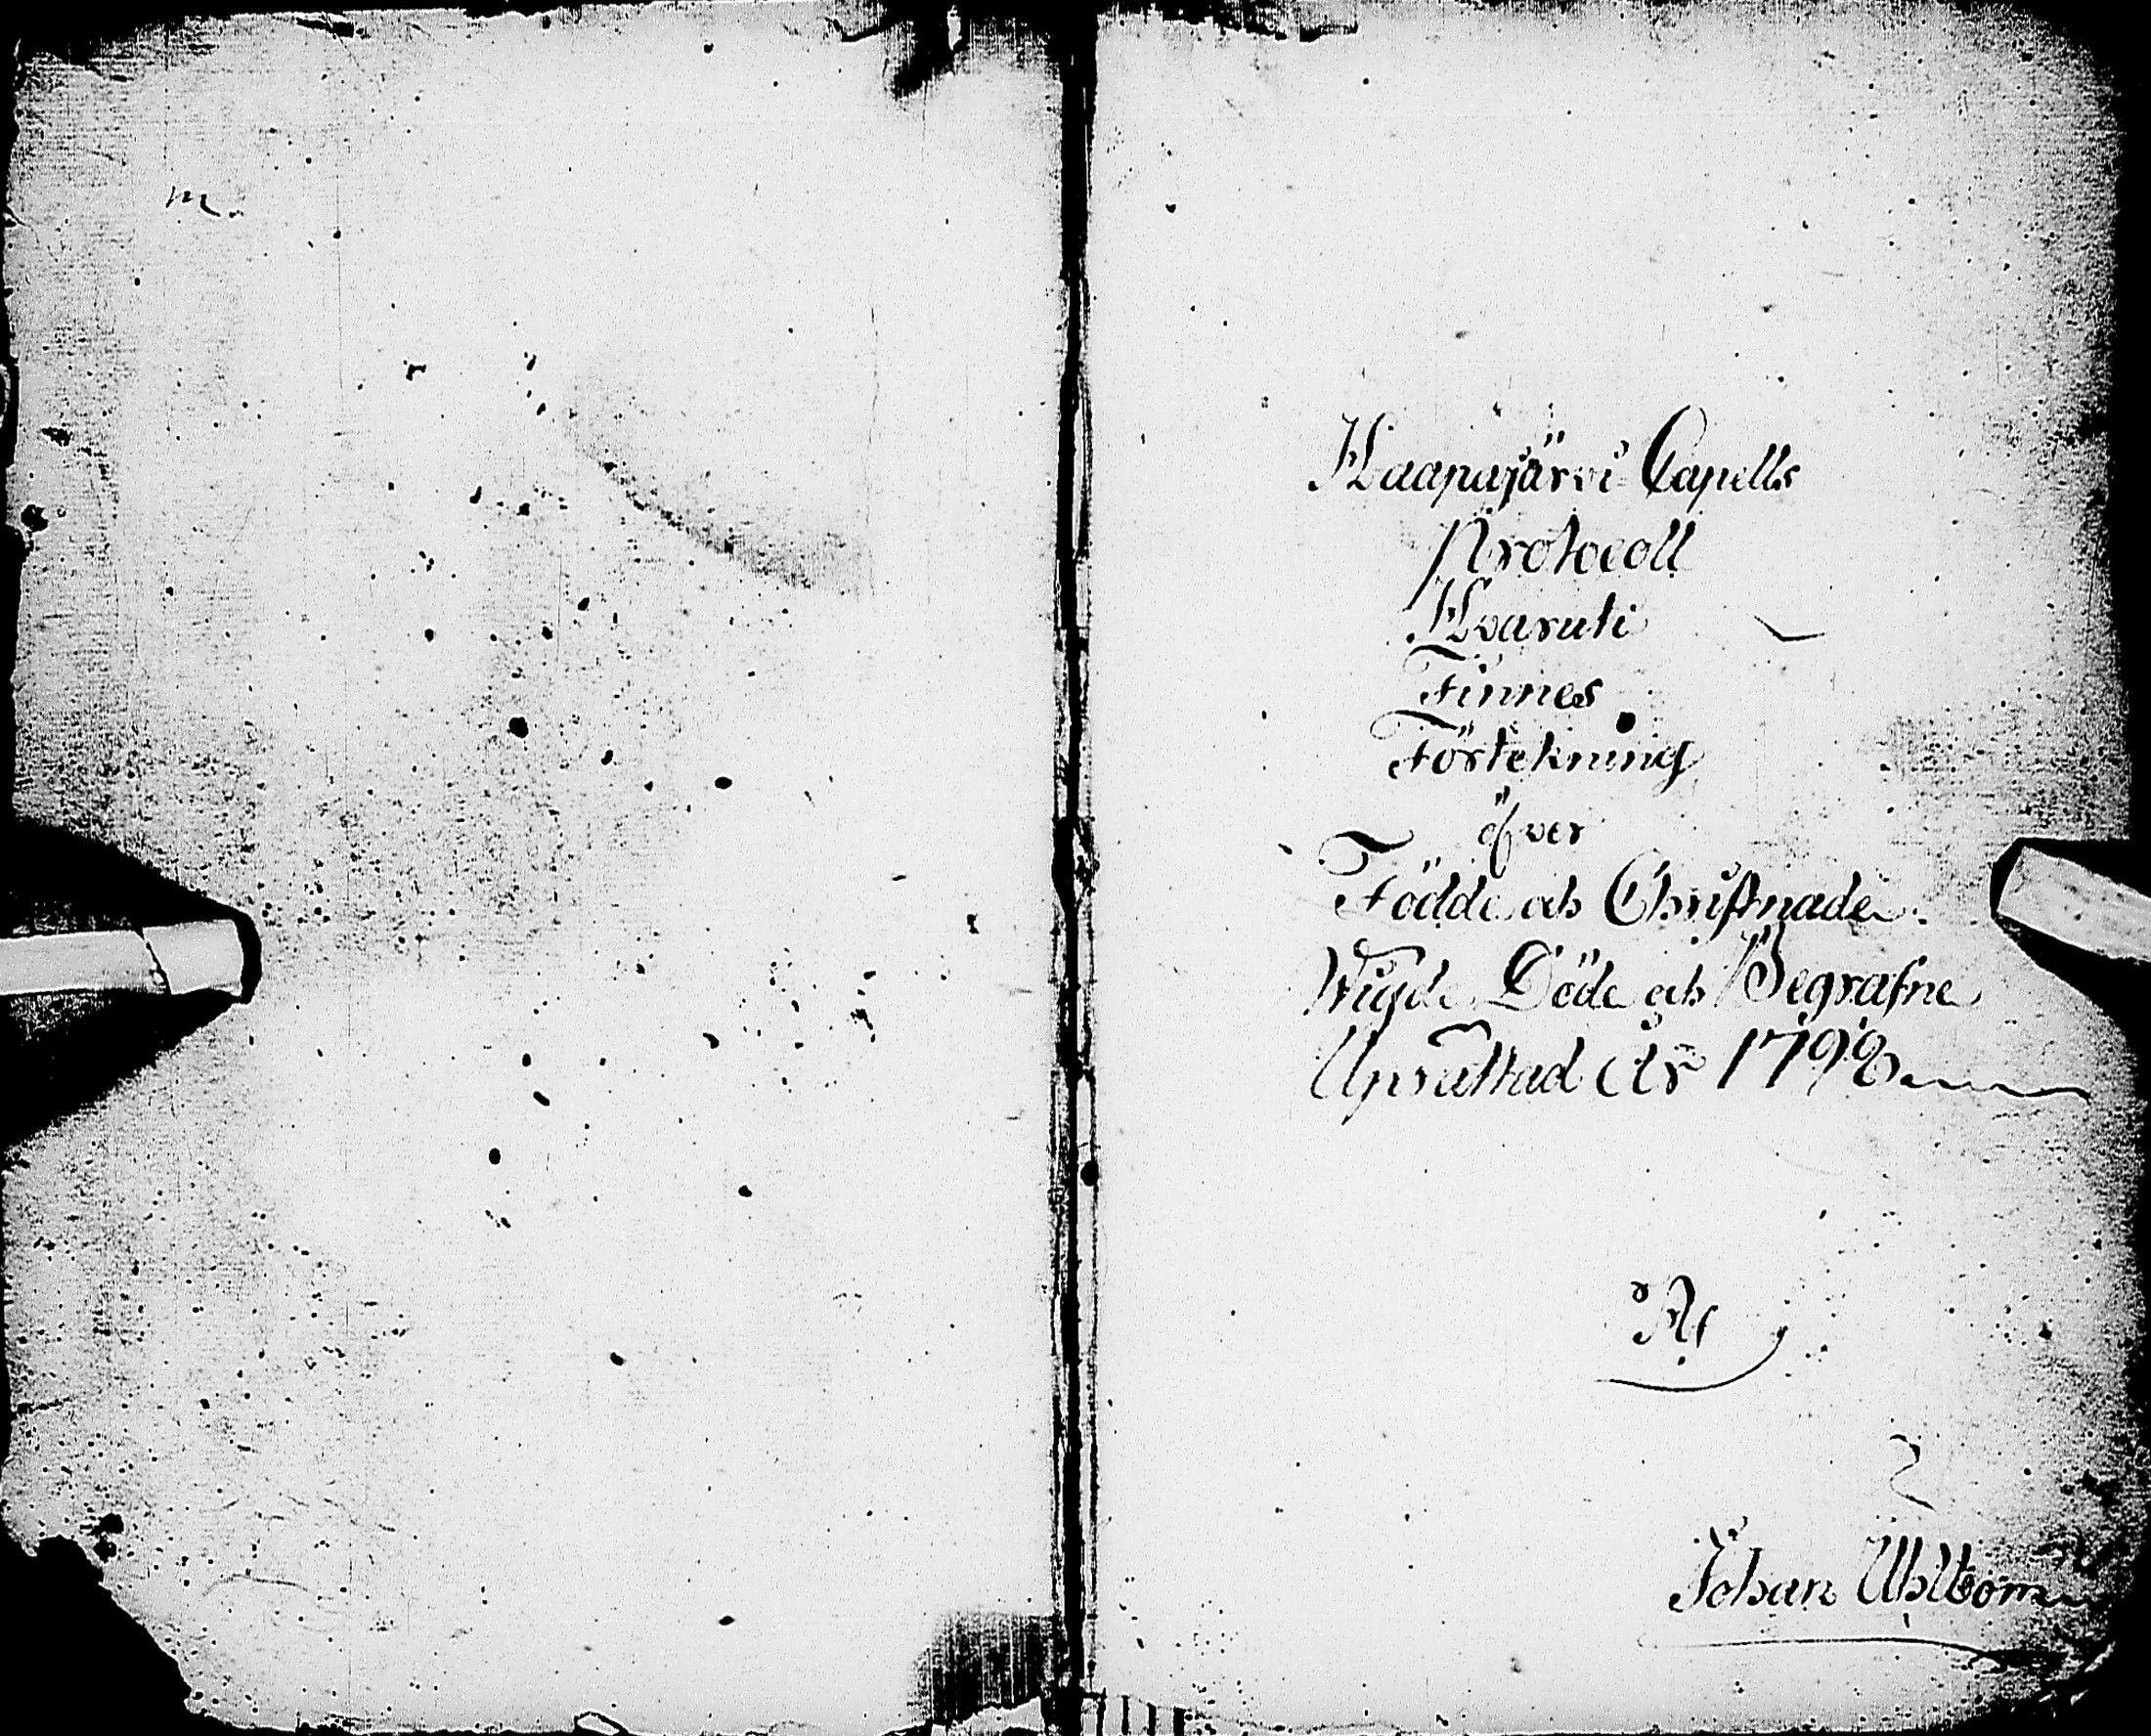 m.
Haapajärvi Capells
Protocoll
Hvaruti
Finnes
Förtekning
öfver
Födde och Christnade
Wigde Döde och Begrafne
Uprättad År 1798
Af
Johan